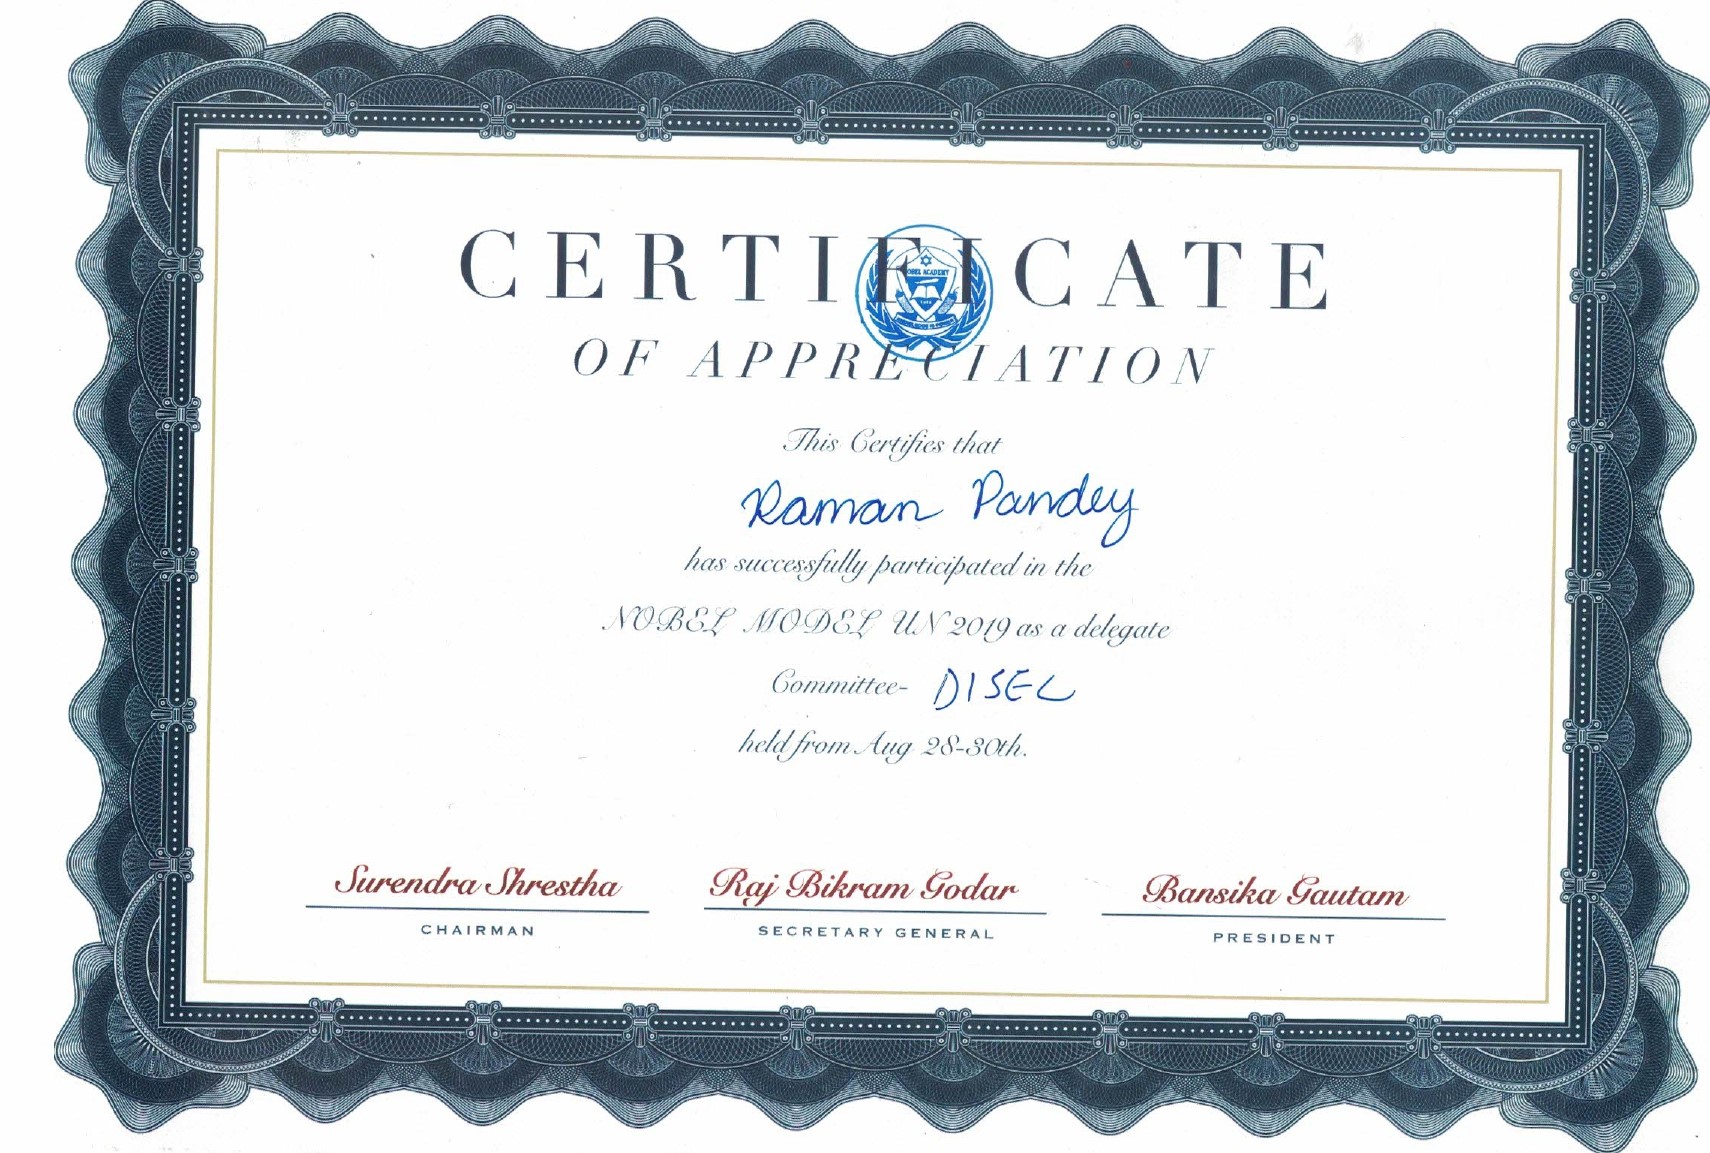 CERTIFICATE
OF APPRECIATION
This Certifies that
Raman Pandey
has successfully participated in the
NOBEL MODEL UN 2019 as a delegate
Committee- DISEC
held from Aug 28-30th.
Surendra Shrestha
CHAIRMAN
Raj Bikram Godar
SECRETARY GENERAL
Bansika Gautam
PRESIDENT